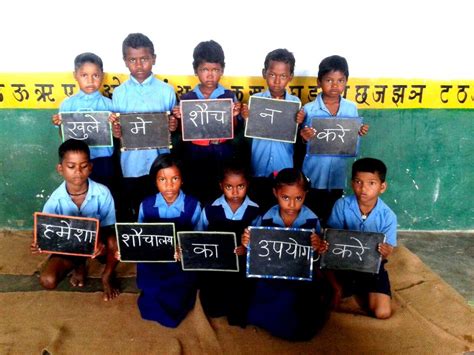 ऊ ऋ ए अः ज झ ञ ट ठ
खुले मे शौच न करे
हमेशा शौचालय का उपयोग करे